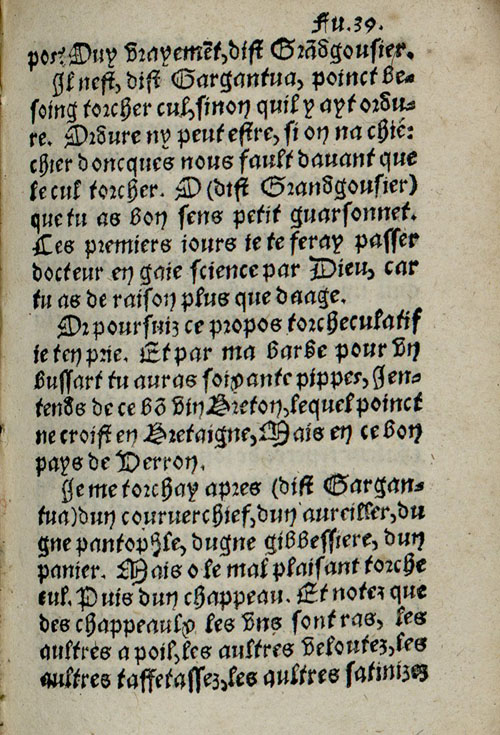 Fu.39.
por? Ouy vrayemẽt, dist Grãdgousier.
Il nest, dist Gargantua, poinct be-
soing torcher cul, sinon quil y ayt ordu-
re. Ordure ny peut estre, si on na chié:
chier doncques nous fault davant que
le cul torcher. O (dist Grandgousier)
que tu as bon sens petit guarsonnet.
Ces premiers iours ie te feray passer
docteur en gaie science par Dieu, car
tu as de raison plus que daage.
Or poursuiz ce propos torcheculatif
ie ten prie. Et par ma barbe pour vn
bussart tu auras soixante pippes, Ien-
tends de ce bõ vin Breton, lequel poinct
ne croist en Bretaigne, Mais en ce bon
pays de Verron.
Ie me torchay apres (dist Gargan-
tua) dun couruerchief, dun aureiller, du
gne pantophle, dugne gibbessiere, dun
panier. Mais o le mal plaisant torche
cul. Puis dun chappeau. Et notez que
des chappeaulx les vns sont ras, les
aultres a poil, les aultres veloutez, les
aultres taffetassez, les aultres satinizez